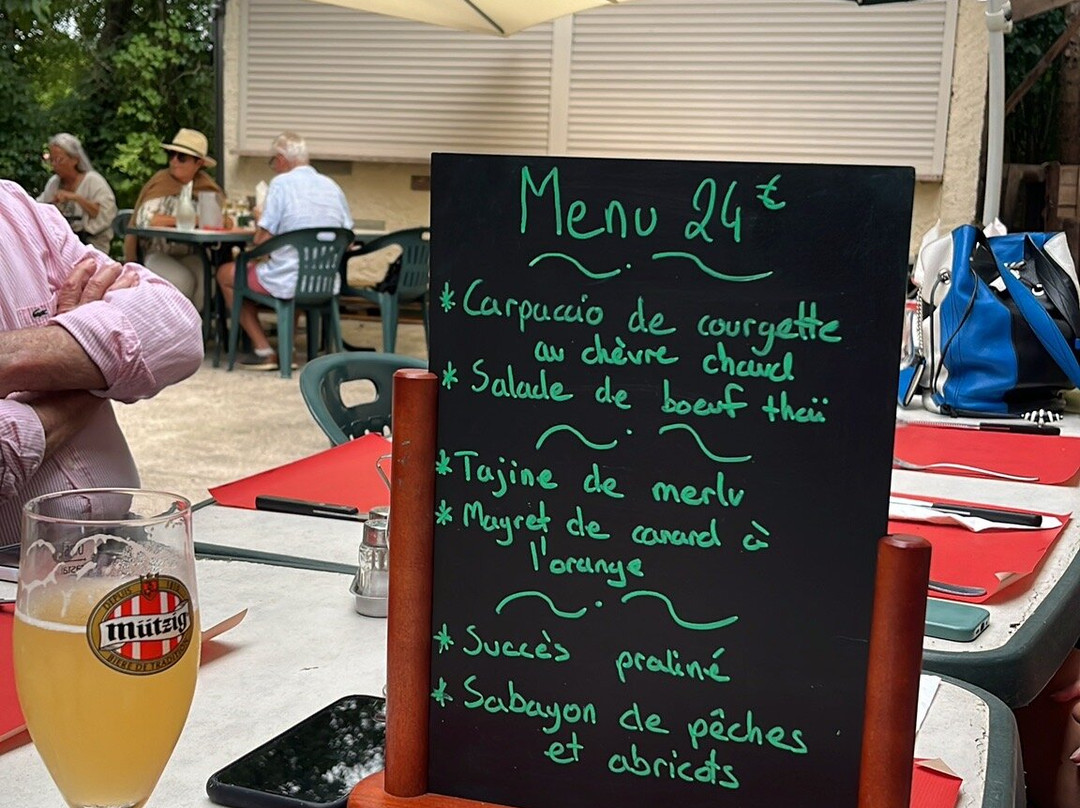 Menu 24€
* Carpaccio de courgette
au chèvre chaud
* Salade de boeuf thaï
* Tajine de merlu
* Magret de canard à
l'orange
* Succès praliné
* Sabayon de pêches
et abricots
DEPUIS
Mützig
BIÈRE DE TRADITION